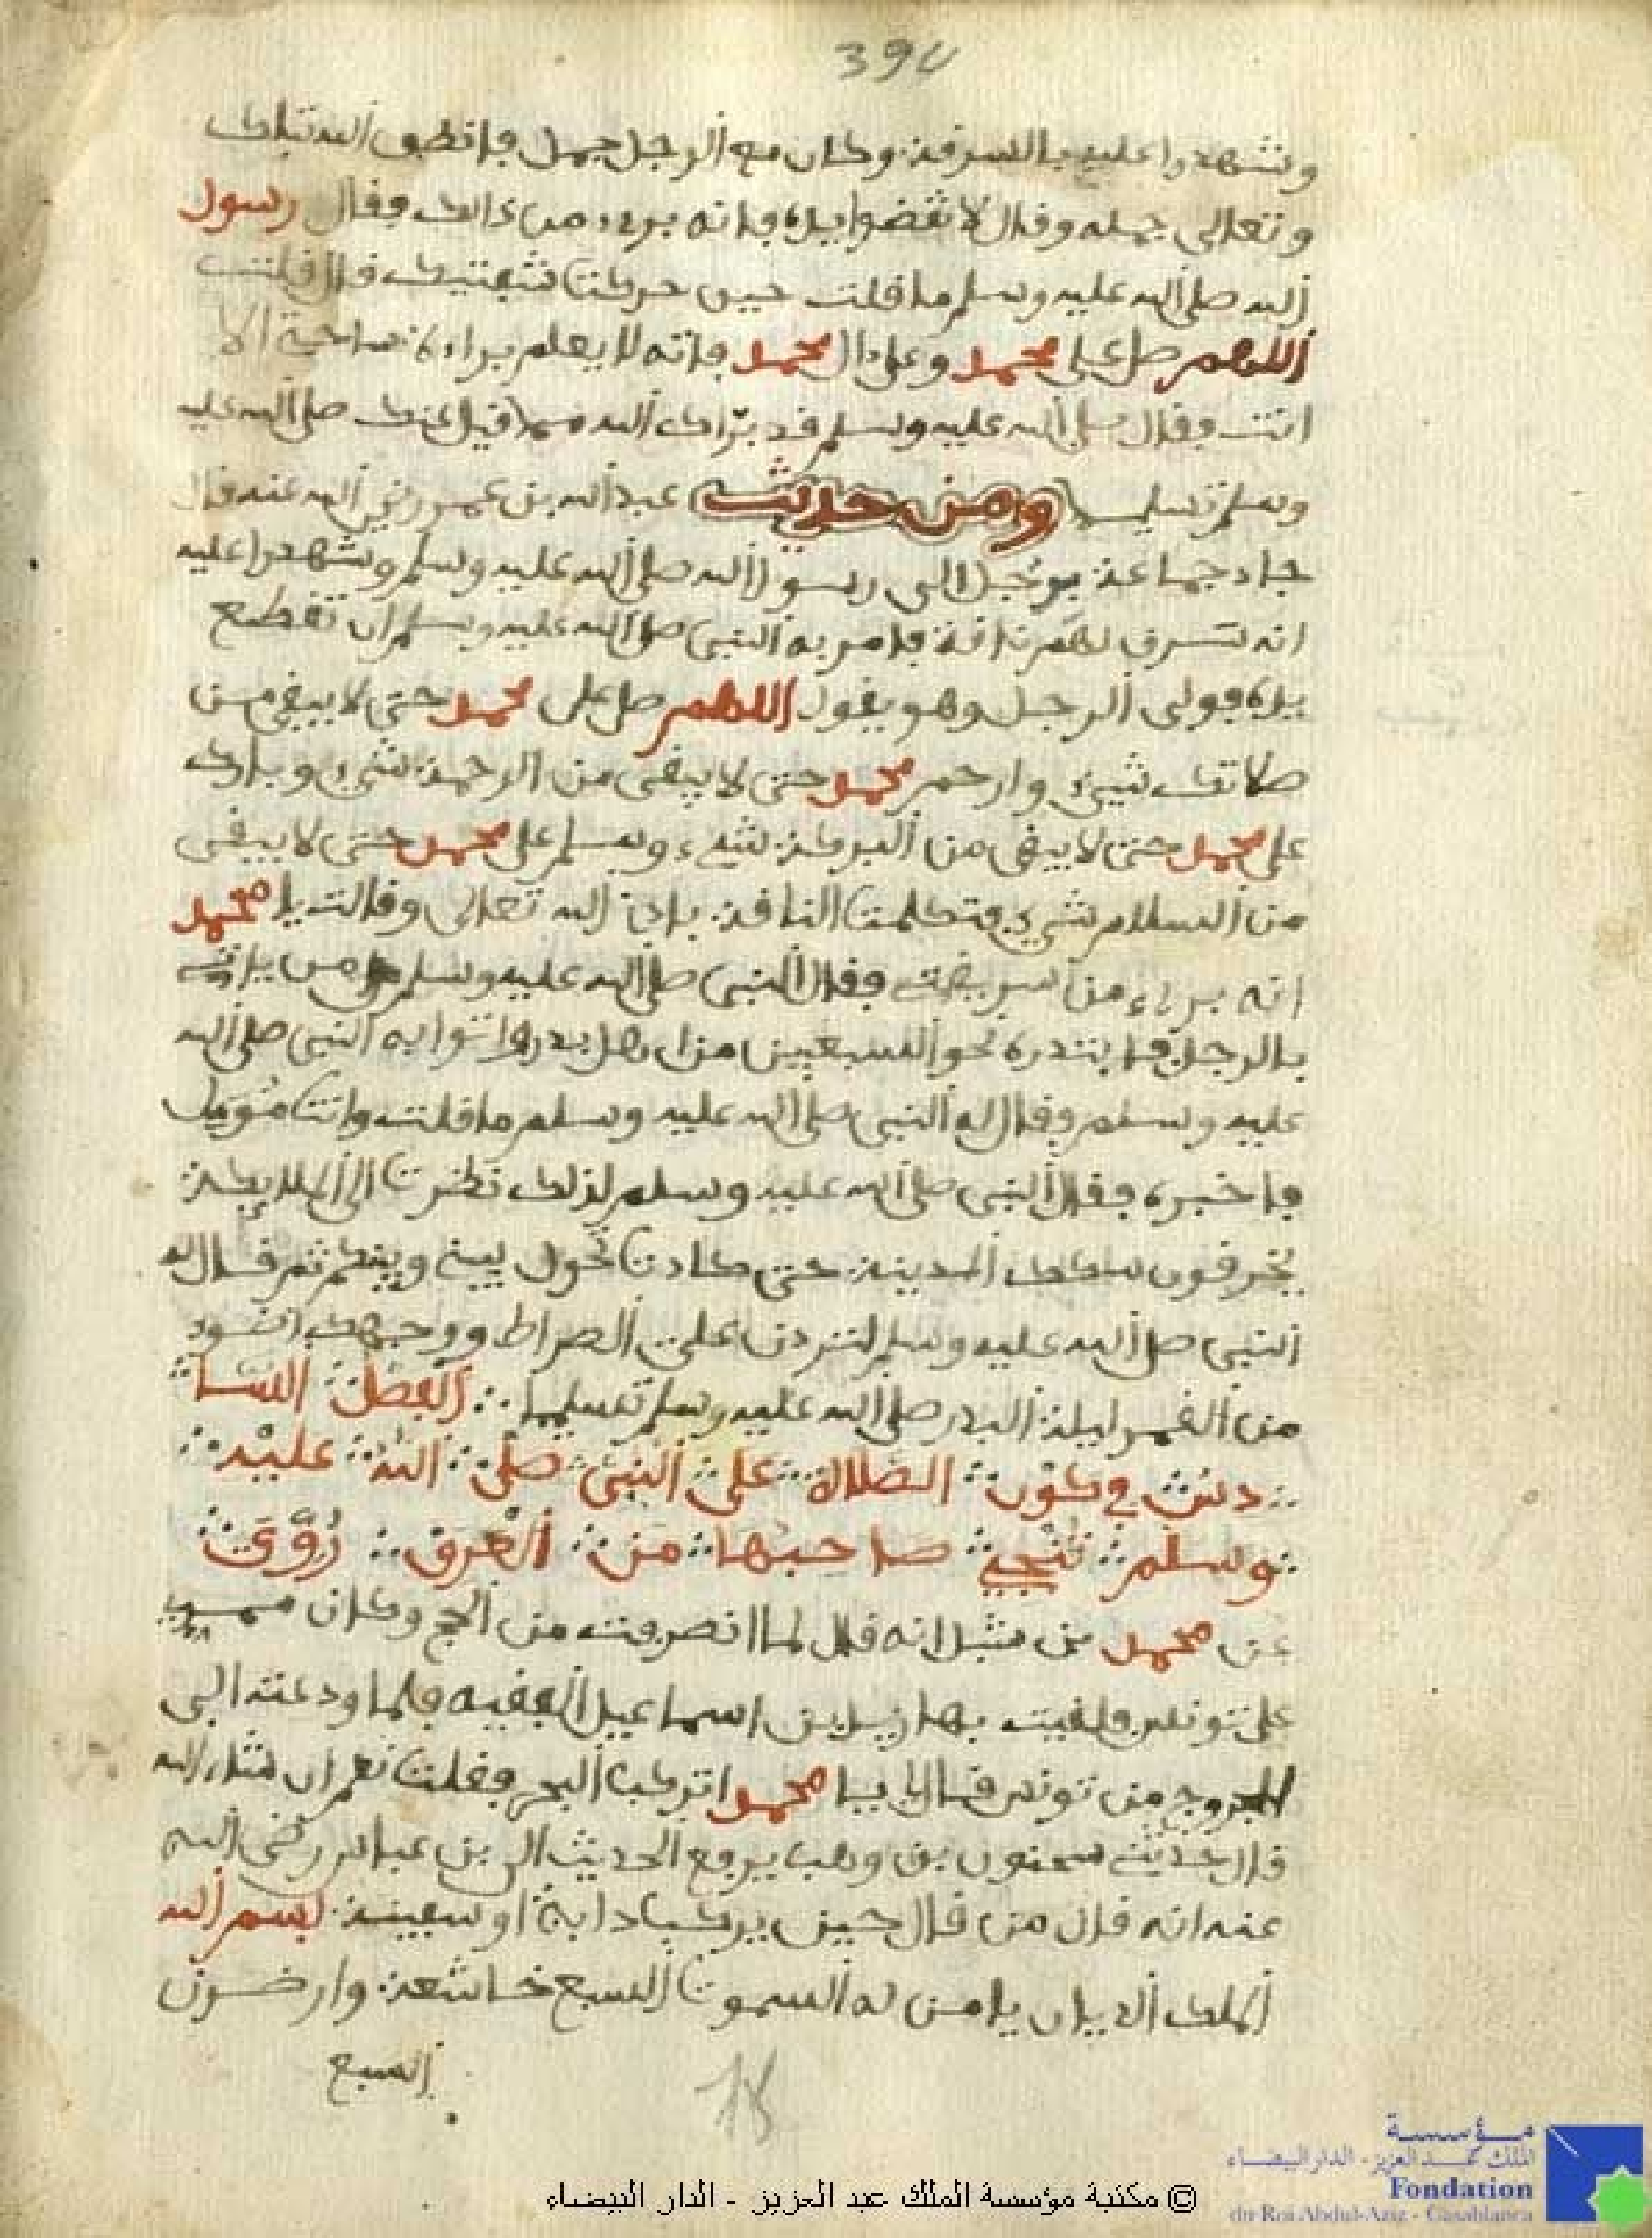 394
وشهدوا عليه بالسرقة وكان مع الرجل جمل فانطق الله تبارك
وتعالى جمله وقال لا تقضوا يده فانه بريء من ذالك فقال رسول
الله صلى الله عليه وسلم ما قلت حين حركت شفتيك قال قلت
اللهم صل على محمد وعلى ءال محمد فانه لا يعلم براءة ساحتي الا
انت فقال صلى الله عليه وسلم قد براك الله مما قيل عنك صلى الله عليه
وسلم تسليما ومن حديث عبد الله بن عمر رضي الله عنه قال
جاء جماعة برجل الى رسول الله صلى الله عليه وسلم وشهدوا عليه
انه سرق لهم ناقة فامر به النبي صلى الله عليه وسلم ان تقطع
يده فولى الرجل وهو يقول اللهم صل على محمد حتى لا يبقى من
صلاتك شيء وارحم محمد حتى لا يبقى من الرحمة شيء وبارك
على محمد حتى لا يبقى من البركة شيء وسلم على محمد حتى لا يبقى
من السلام شيء فتكلمت الناقة باذن الله تعالى وقالت يا محمد
انه بريء من سرقتي فقال النبي صلى الله عليه وسلم من ياتني
بالرجل فابتدره نحو السبعين من اهل بدر واتوا به النبي صلى الله
عليه وسلم فقال له النبي صلى الله عليه وسلم ما قلت وانت مول
فاخبره فقال النبي صلى الله عليه وسلم لذلك نظرت الى الملايكة
يخرقون سكك المدينة حتى كادت تحول بيني وبينكم ثم قال له
النبي صلى الله عليه وسلم لتردن على الصراط ووجهك انور
من القمر ليلة البدر صلى الله عليه وسلم تسليما الفصل السا
دس في كون الصلاة على النبي صلى الله عليه
وسلم تنجي صاحبها من الغرق روي
عن محمد بن شبل انه قال لما انصرفت من الحج وكان ممري
على تونس فلقيت بها زيد بن اسماعيل الفقيه فلما ودعته الى
الخروج من تونس قال لي يا محمد اتركب البحر فقلت نعم ان شاء الله
قال حدثني سحنون بن وهب يرفع الحديث الى بن عباس رضي الله
عنه انه قال من قال حين يركب دابة او سفينة بسم الله
الملك الديان يا من له السموات السبع خاشعة وارضون
السبع
18
© مكتبة مؤسسة الملك عبد العزيز - الدار البيضاء
مؤسسة
الملك عبد العزيز - الدار البيضاء
Fondation
du Roi Abdul-Aziz - Casablanca